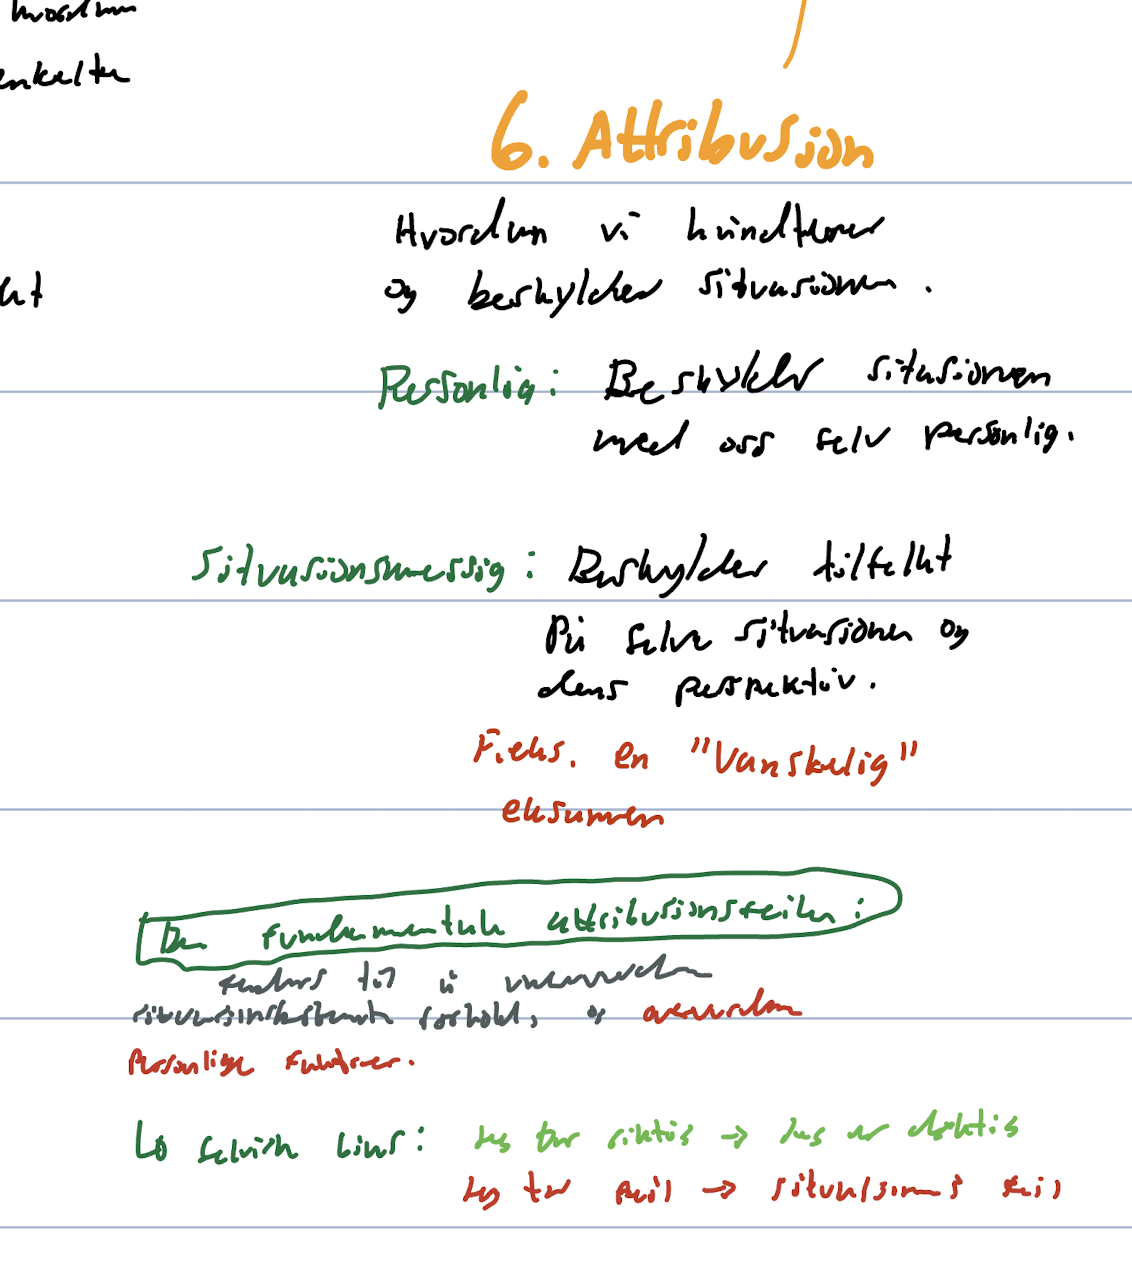 hvordan
enkelte
6. Attribusjon
Hvordan vi håndterer
og beskylder situasjonen.
Personlig: Beskylder situasjonen
med oss selv personlig.
Situasjonsmessig: Beskylder tilfellet
På selve situasjonen og
dens perspektiv.
F.eks. en "Vanskelig"
eksamen
Den fundamentale attribusjonsfeilen:
tendens til å undervurdere
situasjonsbestemte forhold, og overvurdere
Personlige faktorer.
↳ selvisk bias: Jeg tar riktig → Jeg er
Jeg tar feil → situasjonens feil